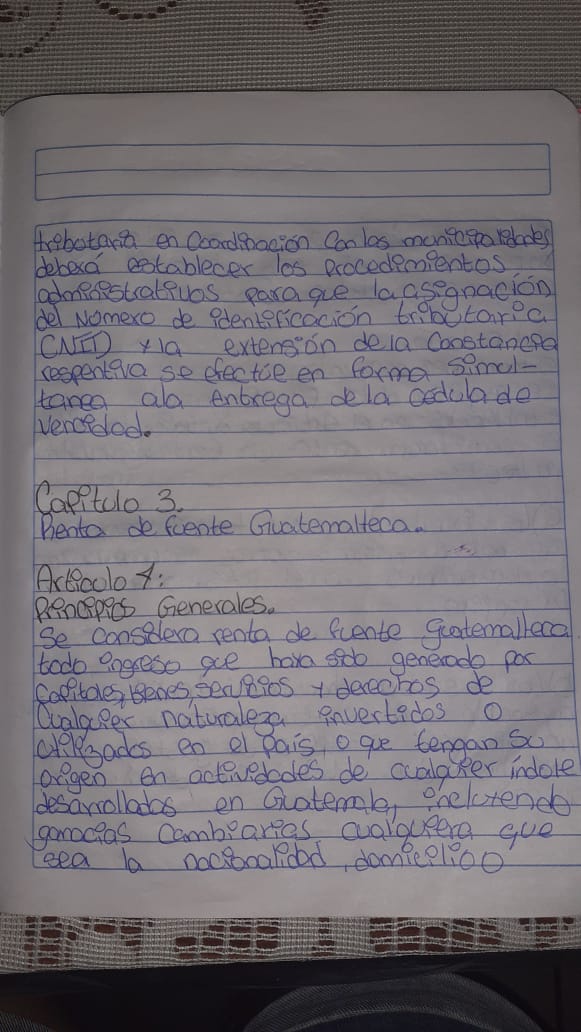 tributaria en Coordinación Con las municipalidades
deberá establecer los Procedimientos
administrativos para que la asignación
del Número de identificación tributaria
(NIT) y la extensión de la Constancia
respentiva se efectúe en forma Simul-
tanea ala entrega de la cedula de
vencidad.
Capitulo 3.
Renta de fuente Guatemalteca.
Articulo 4:
Principios Generales.
Se considera renta de fuente guatemalteca
todo ingreso que haya sido generado por
Capitales, bienes, servicios y derechos de
Cualquier naturaleza invertidos o
utilizados en el país, o que tengan su
origen en actividades de cualquier índole
desarrollados en Guatemala, incluyendo
ganacias Cambiarias cualquiera que
sea la nacionalidad, domicilio o